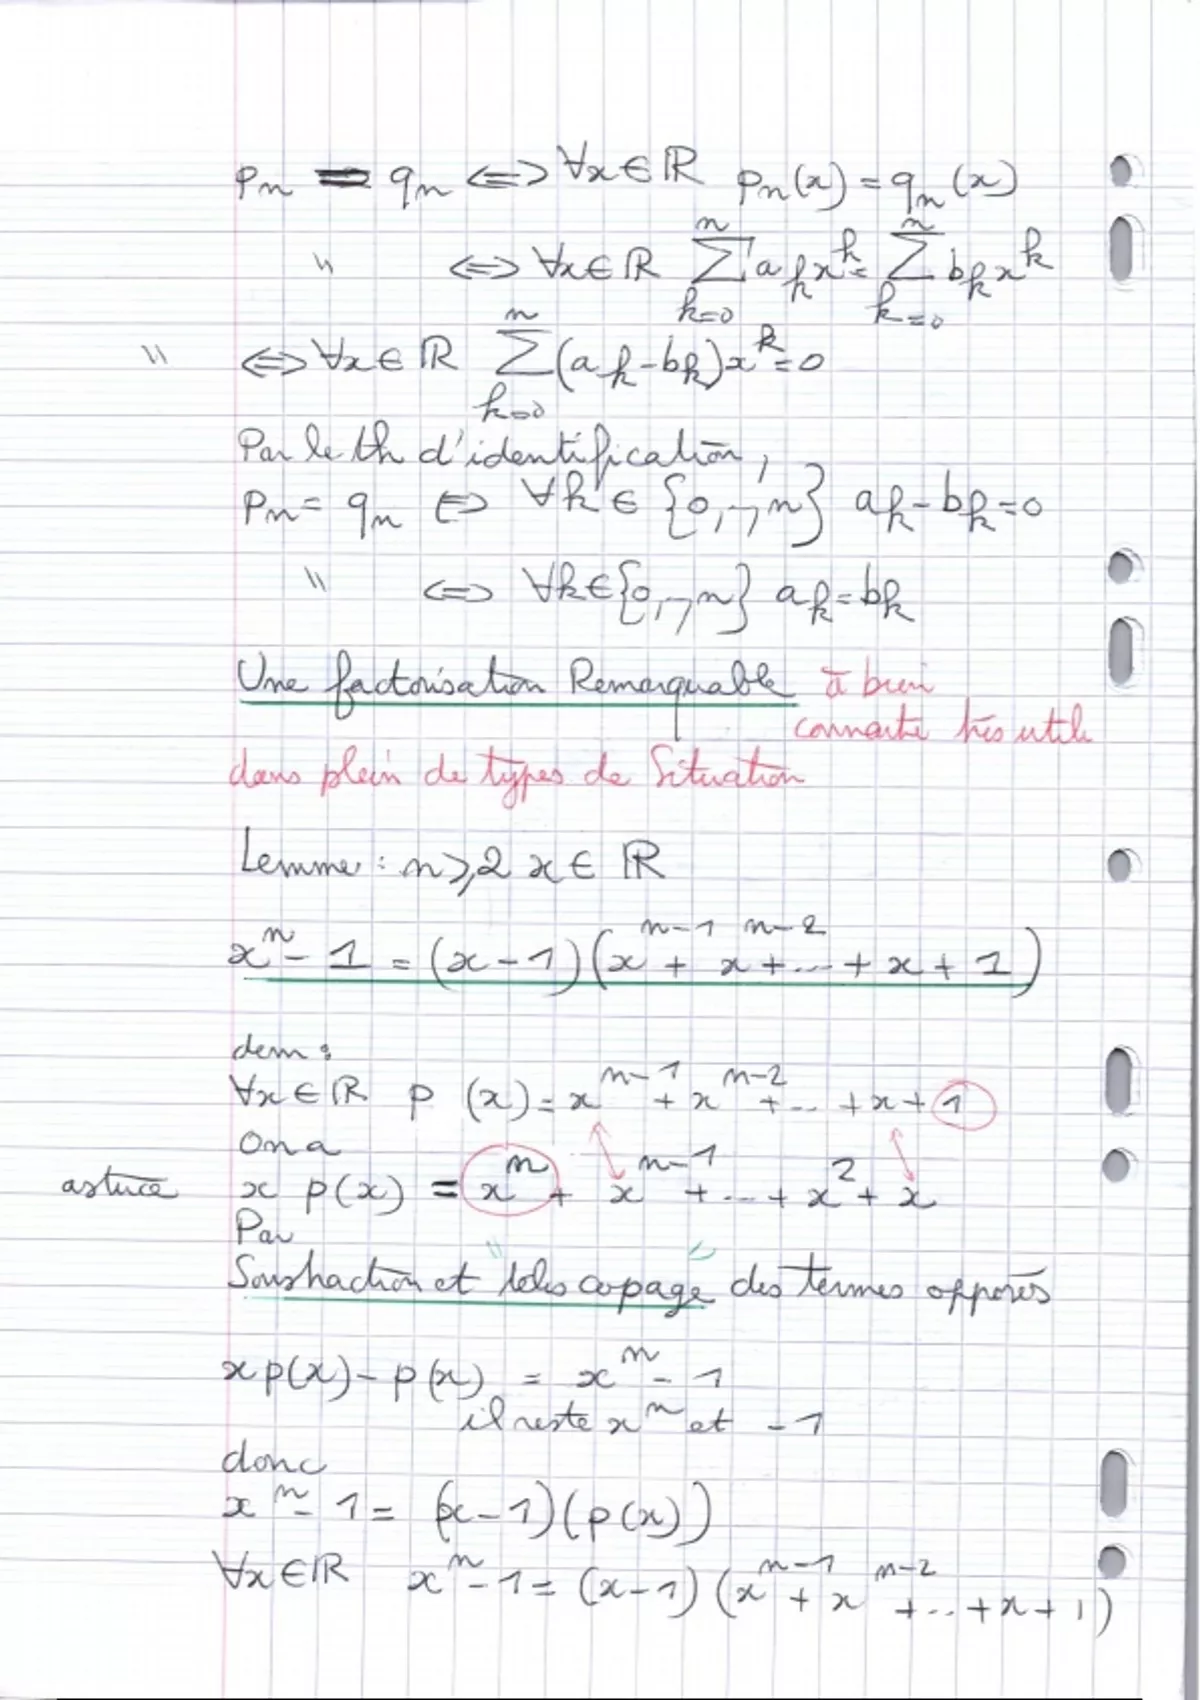 pn = qn ⟺ ∀x ∈ ℝ pn(x) = qn(x)
" ⟺ ∀x ∈ ℝ ∑_{k=0}^{n} a_k x^k = ∑_{k=0}^{n} b_k x^k
" ⟺ ∀x ∈ ℝ ∑_{k=0}^{n} (a_k - b_k) x^k = 0
Par le th d'identification,
Pn = qn ⟺ ∀k ∈ {0,..,n} a_k - b_k = 0
" ⟺ ∀k ∈ {0,..,n} a_k = b_k
Une factorisation Remarquable à bien
connaitre très utile
dans plein de types de Situation
Lemme : n ⩾ 2 x ∈ ℝ
x^n - 1 = (x - 1)(x^{n-1} + x^{n-2} + ... + x + 1)
dem :
∀x ∈ ℝ p (x) = x^{n-1} + x^{n-2} + ... + x + 1
On a
astuce x p(x) = x^n + x^{n-1} + ... + x^2 + x
Par
Soustraction et "telescopage" des termes opposés
x p(x) - p(x) = x^n - 1
il reste x^n et - 1
donc
x^n - 1 = (x - 1)(p(x))
∀x ∈ ℝ x^n - 1 = (x - 1)(x^{n-1} + x^{n-2} + ... + x + 1)